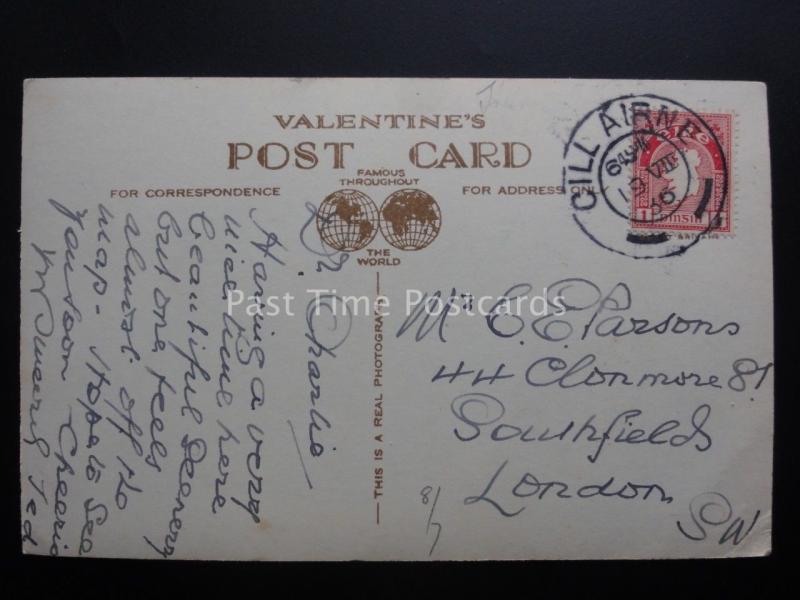 VALENTINE'S
POST CARD
FAMOUS
THROUGHOUT
FOR CORRESPONDENCE
FOR ADDRESS ONLY
THE
WORLD
THIS IS A REAL PHOTOGRAPH
CILL AIRNE
36
PINSIN
Dr Charlie
Having a very
nice time here
beautiful Scenery
but one feels
almost off the
map. Hope to see
you soon Cheerio
Yrs Sincerely Ted
Mr C. E. Parsons
44 Clonmore St
Southfields
London
SW
Past Time Postcards